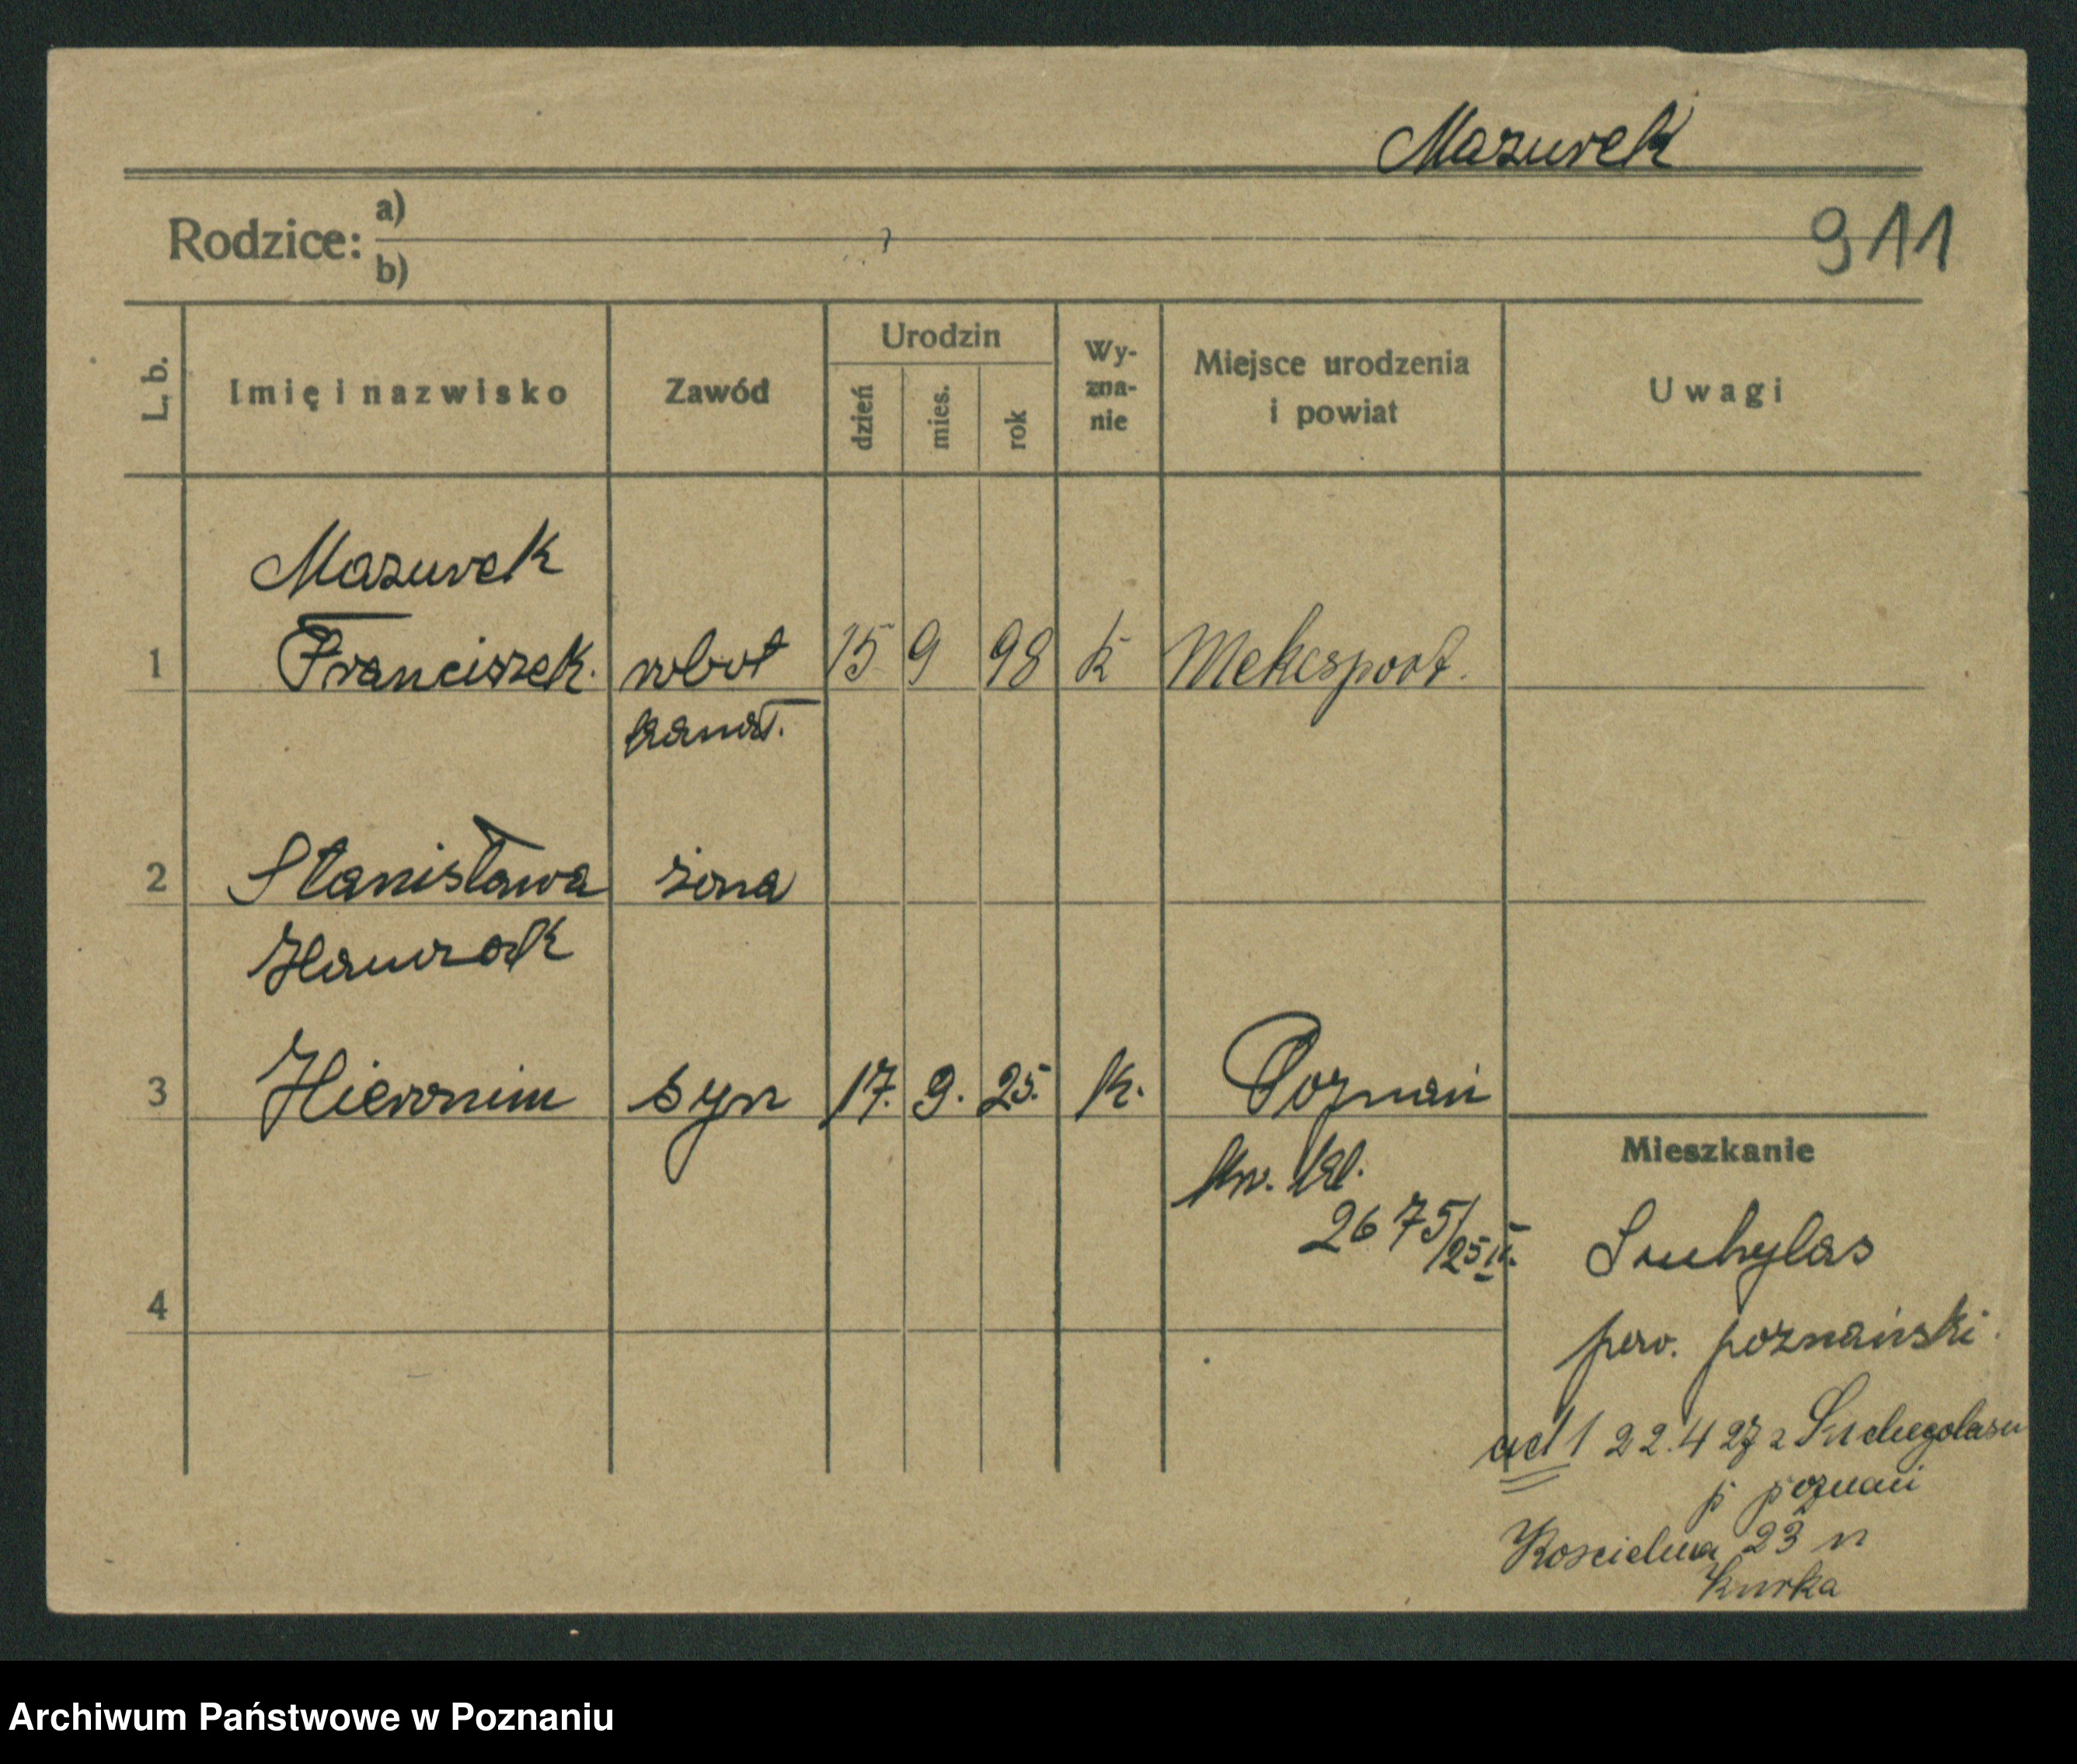 Mazurek
Rodzice: a)
b)
911
L. b.
Imię i nazwisko
Zawód
Urodzin
dzień
mies.
rok
Wy-
zna-
nie
Miejsce urodzenia
i powiat
Uwagi
Mazurek
1 Franciszek. robot 15 9 98 k Mekcsport.
2 Stanisława żona
3 Hieronim syn 17. 9. 25. k. Poznań
2675/25
4
Mieszkanie
Suchylas
pow. poznański.
ad 1 22.4 27 z Suchegolasu
p poznań
Kościelna 23 n
Kurka
Archiwum Państwowe w Poznaniu